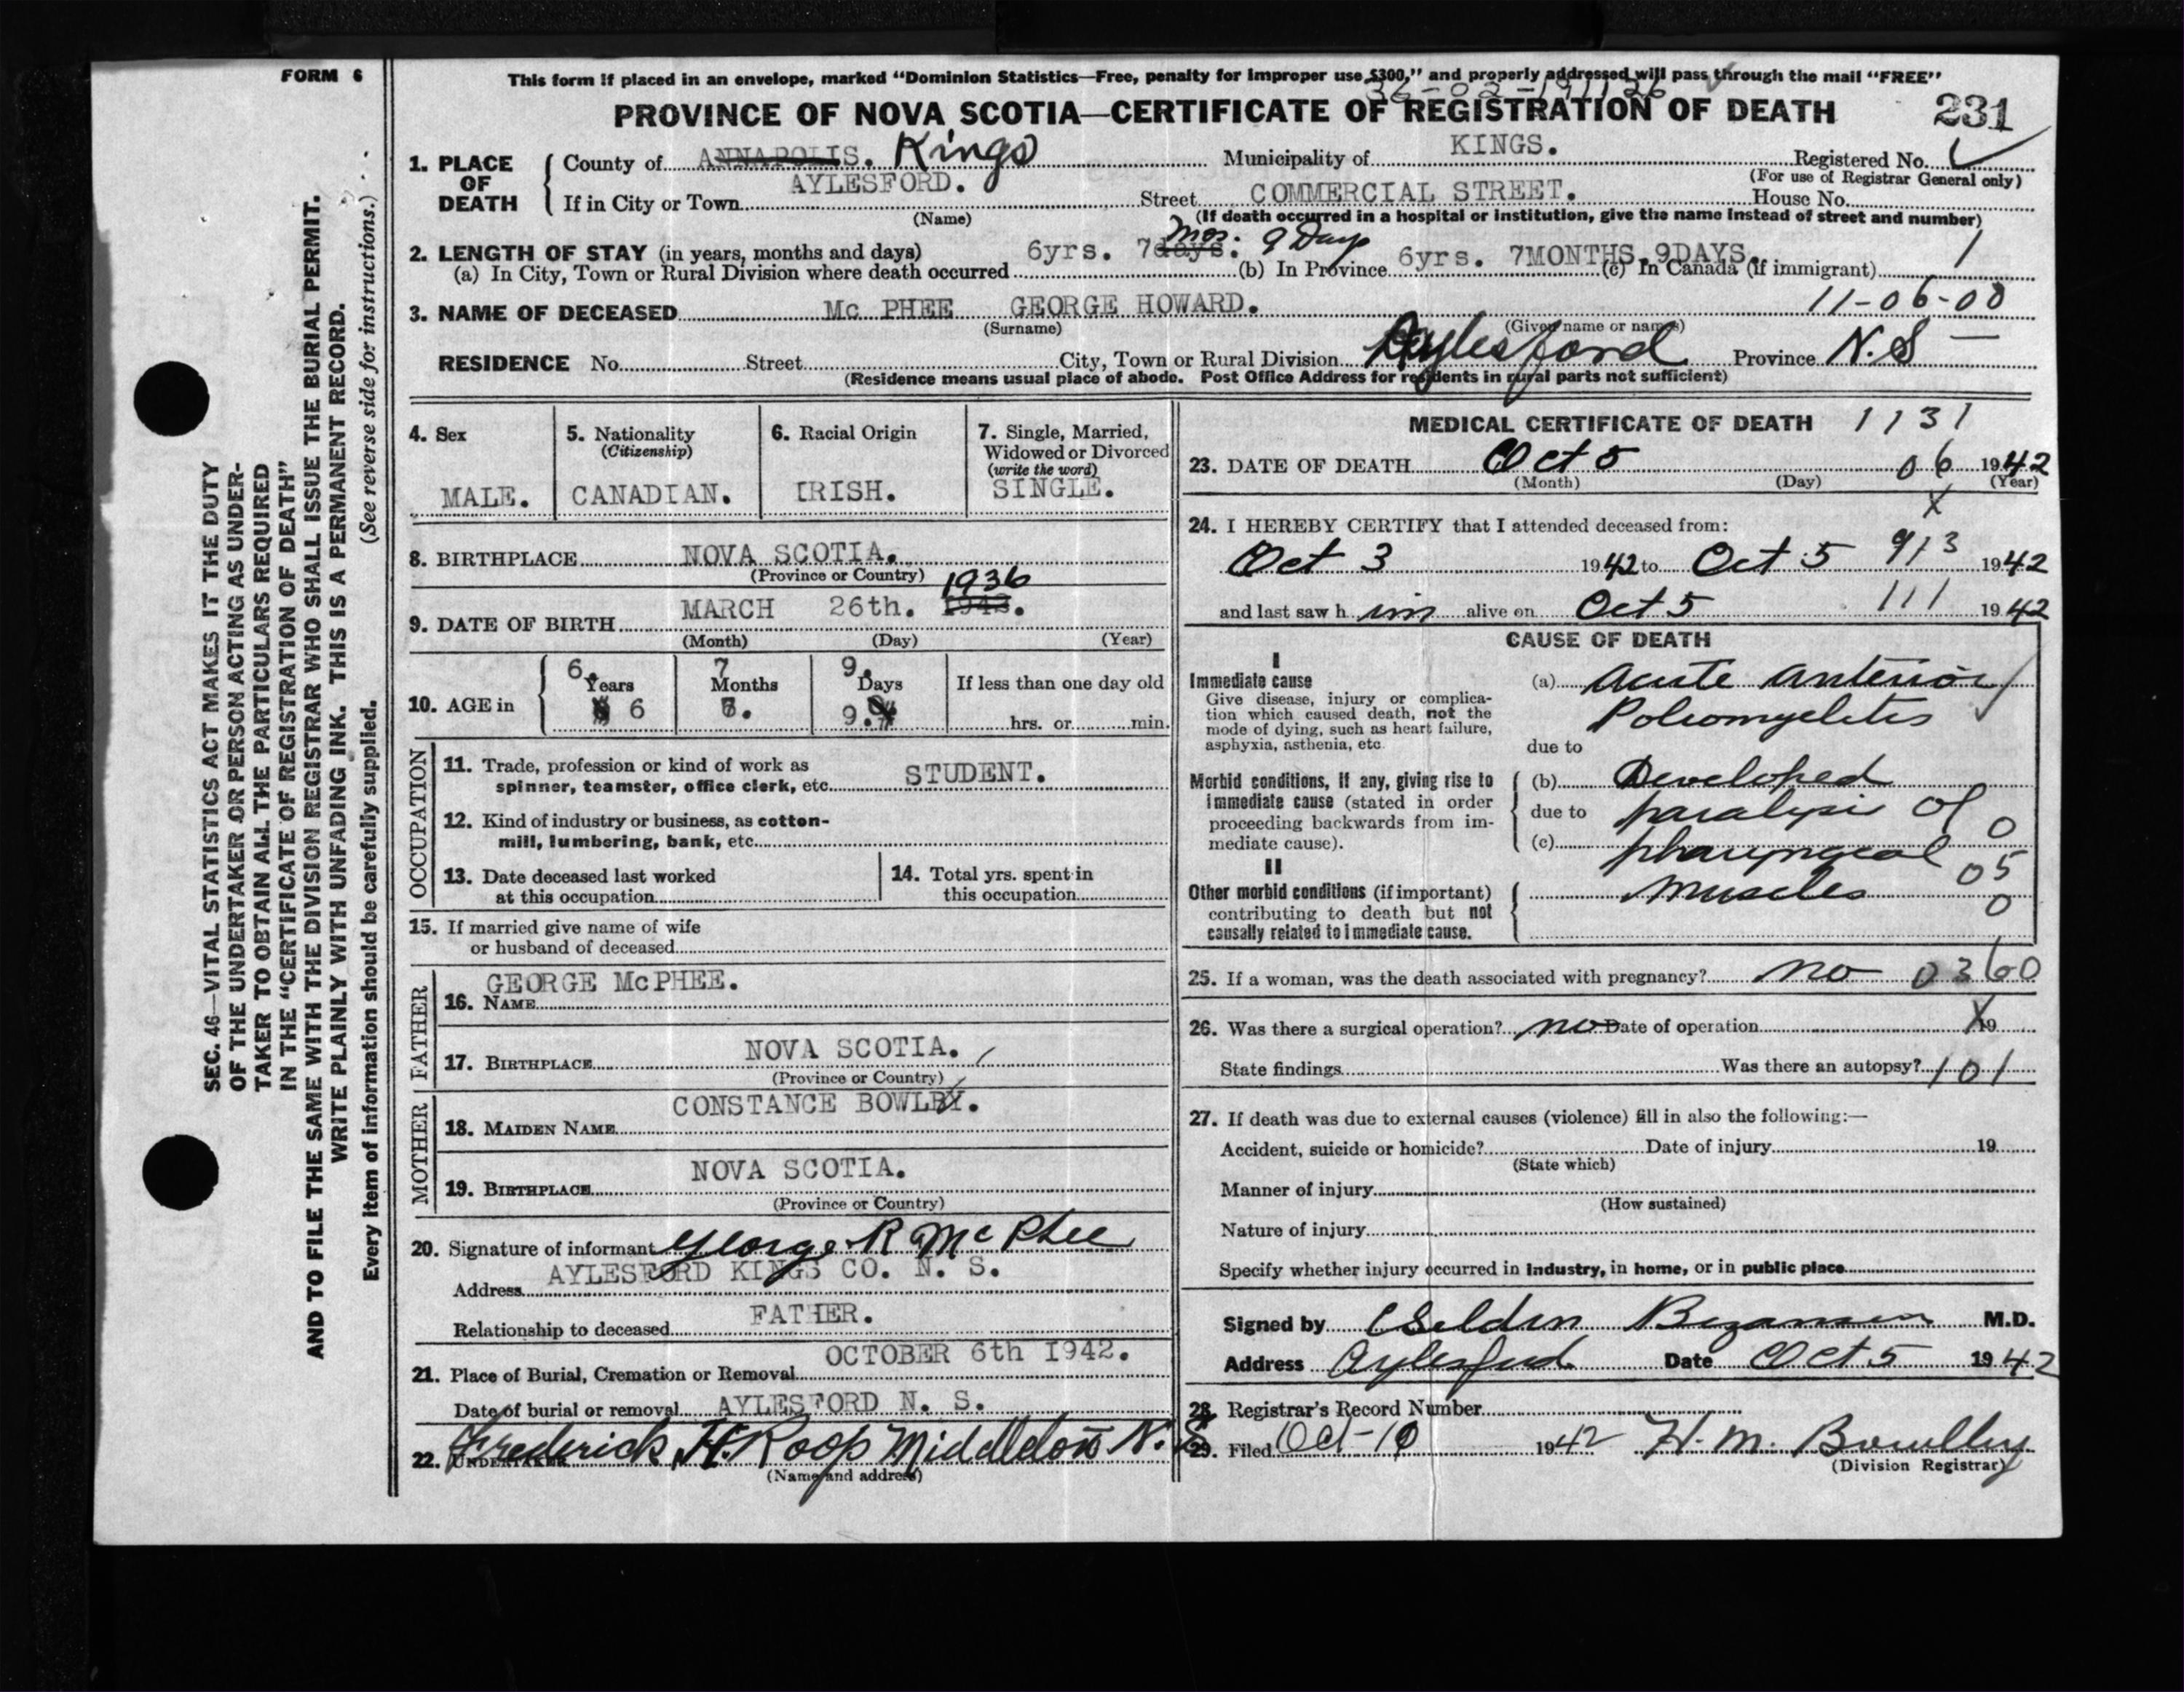 FORM 6
This form if placed in an envelope, marked "Dominion Statistics—Free, penalty for improper use $300," and properly addressed will pass through the mail "FREE"
36-02-191126
PROVINCE OF NOVA SCOTIA—CERTIFICATE OF REGISTRATION OF DEATH 231
1. PLACE OF DEATH
County of ANNAPOLIS. Kings Municipality of KINGS. Registered No.
(For use of Registrar General only)
If in City or Town AYLESFORD. Street COMMERCIAL STREET. House No.
(Name) (If death occurred in a hospital or institution, give the name instead of street and number)
2. LENGTH OF STAY (in years, months and days)
(a) In City, Town or Rural Division where death occurred 6yrs. 7days. Mos. 9 Days (b) In Province 6yrs. 7MONTHS.9DAYS. (c) In Canada (if immigrant) 1
3. NAME OF DECEASED Mc PHEE GEORGE HOWARD. 11-06-00
(Surname) (Given name or names)
RESIDENCE No. Street City, Town or Rural Division Aylesford Province N.S —
(Residence means usual place of abode. Post Office Address for residents in rural parts not sufficient)
4. Sex
MALE.
5. Nationality
(Citizenship)
CANADIAN.
6. Racial Origin
IRISH.
7. Single, Married,
Widowed or Divorced
(write the word)
SINGLE.
8. BIRTHPLACE NOVA SCOTIA.
(Province or Country)
9. DATE OF BIRTH MARCH 26th. 1943. 1936
(Month) (Day) (Year)
10. AGE in
6. 7 9.
Years Months Days If less than one day old
6 9. hrs. or min.
OCCUPATION
11. Trade, profession or kind of work as
spinner, teamster, office clerk, etc. STUDENT.
12. Kind of industry or business, as cotton-
mill, lumbering, bank, etc.
13. Date deceased last worked
at this occupation
14. Total yrs. spent in
this occupation
15. If married give name of wife
or husband of deceased
FATHER
GEORGE McPHEE.
16. NAME
17. BIRTHPLACE NOVA SCOTIA.
(Province or Country)
MOTHER
CONSTANCE BOWLBY.
18. MAIDEN NAME
19. BIRTHPLACE NOVA SCOTIA.
(Province or Country)
20. Signature of informant George R McPhee
Address AYLESFORD KINGS CO. N. S.
Relationship to deceased FATHER.
OCTOBER 6th 1942.
21. Place of Burial, Cremation or Removal
Date of burial or removal AYLESFORD N. S.
22. UNDERTAKER Frederick H. Roop Middleton N. S.
(Name and address)
MEDICAL CERTIFICATE OF DEATH 1131
23. DATE OF DEATH Oct 5 06 1942
(Month) (Day) (Year)
X
24. I HEREBY CERTIFY that I attended deceased from:
Oct 3 1942 to Oct 5 913 1942
and last saw h im alive on Oct 5 111 1942
CAUSE OF DEATH
I
Immediate cause
Give disease, injury or complica-
tion which caused death, not the
mode of dying, such as heart failure,
asphyxia, asthenia, etc.
(a) Acute anterior
Poliomyelitis
due to
Morbid conditions, if any, giving rise to
immediate cause (stated in order
proceeding backwards from im-
mediate cause).
(b) Developed
due to paralysis of 0
(c) pharyngeal 05
II
Other morbid conditions (if important)
contributing to death but not
causally related to immediate cause.
muscles 0
25. If a woman, was the death associated with pregnancy? no 0360
26. Was there a surgical operation? no Date of operation X 19
State findings Was there an autopsy? 101
27. If death was due to external causes (violence) fill in also the following:—
Accident, suicide or homicide? Date of injury 19
(State which)
Manner of injury
(How sustained)
Nature of injury
Specify whether injury occurred in industry, in home, or in public place
Signed by Selden Bezanson M.D.
Address Aylesford Date Oct 5 1942
28. Registrar's Record Number
29. Filed Oct-10 1942 H. M. Bowlby
(Division Registrar)
SEC. 46—VITAL STATISTICS ACT MAKES IT THE DUTY
OF THE UNDERTAKER OR PERSON ACTING AS UNDER-
TAKER TO OBTAIN ALL THE PARTICULARS REQUIRED
IN THE "CERTIFICATE OF REGISTRATION OF DEATH"
AND TO FILE THE SAME WITH THE DIVISION REGISTRAR WHO SHALL ISSUE THE BURIAL PERMIT.
WRITE PLAINLY WITH UNFADING INK. THIS IS A PERMANENT RECORD.
Every item of information should be carefully supplied. (See reverse side for instructions.)